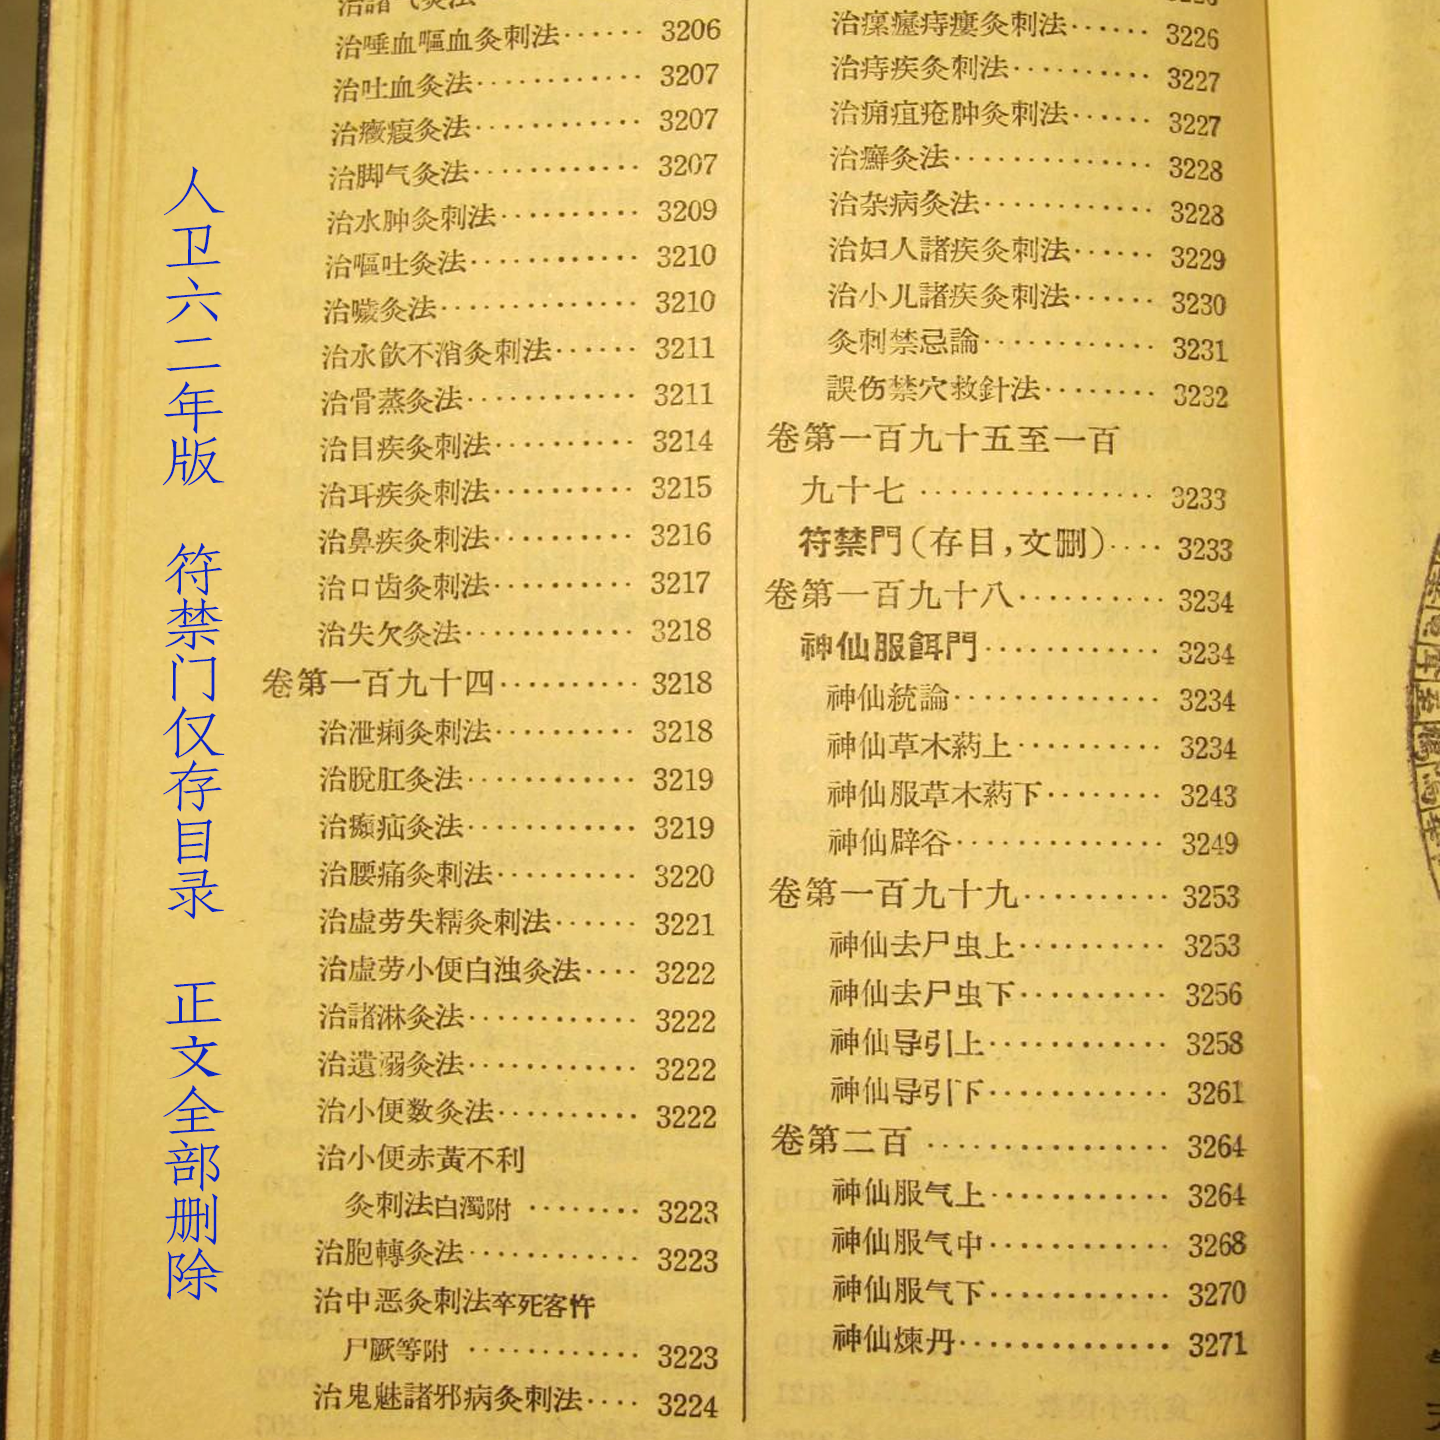 人卫六二年版　符禁门仅存目录　正文全部删除
治唾血嘔血灸刺法······ 3206
治吐血灸法············ 3207
治癥瘕灸法············ 3207
治脚气灸法············ 3207
治水肿灸刺法·········· 3209
治嘔吐灸法············ 3210
治噦灸法·············· 3210
治水飲不消灸刺法······ 3211
治骨蒸灸法············ 3211
治目疾灸刺法·········· 3214
治耳疾灸刺法·········· 3215
治鼻疾灸刺法·········· 3216
治口齿灸刺法·········· 3217
治失欠灸法············ 3218
卷第一百九十四·········· 3218
治泄痢灸刺法·········· 3218
治脫肛灸法············ 3219
治㿗疝灸法············ 3219
治腰痛灸刺法·········· 3220
治虛劳失精灸刺法······ 3221
治虛劳小便白浊灸法···· 3222
治諸淋灸法············ 3222
治遺溺灸法············ 3222
治小便数灸法·········· 3222
治小便赤黃不利
灸刺法白濁附 ········ 3223
治胞轉灸法············ 3223
治中恶灸刺法卒死客忤
尸厥等附 ············ 3223
治鬼魅諸邪病灸刺法···· 3224
治瘰癧痔瘻灸刺法······ 3226
治痔疾灸刺法·········· 3227
治痈疽疮肿灸刺法······ 3227
治癬灸法·············· 3228
治杂病灸法············ 3228
治妇人諸疾灸刺法······ 3229
治小儿諸疾灸刺法······ 3230
灸刺禁忌論············ 3231
誤伤禁穴救針法········ 3232
卷第一百九十五至一百
九十七 ················ 3233
符禁門(存目,文删)···· 3233
卷第一百九十八·········· 3234
神仙服餌門············ 3234
神仙統論·············· 3234
神仙草木葯上·········· 3234
神仙服草木葯下········ 3243
神仙辟谷·············· 3249
卷第一百九十九·········· 3253
神仙去尸虫上·········· 3253
神仙去尸虫下·········· 3256
神仙导引上············ 3258
神仙导引下············ 3261
卷第二百 ················ 3264
神仙服气上············ 3264
神仙服气中············ 3268
神仙服气下············ 3270
神仙煉丹·············· 3271